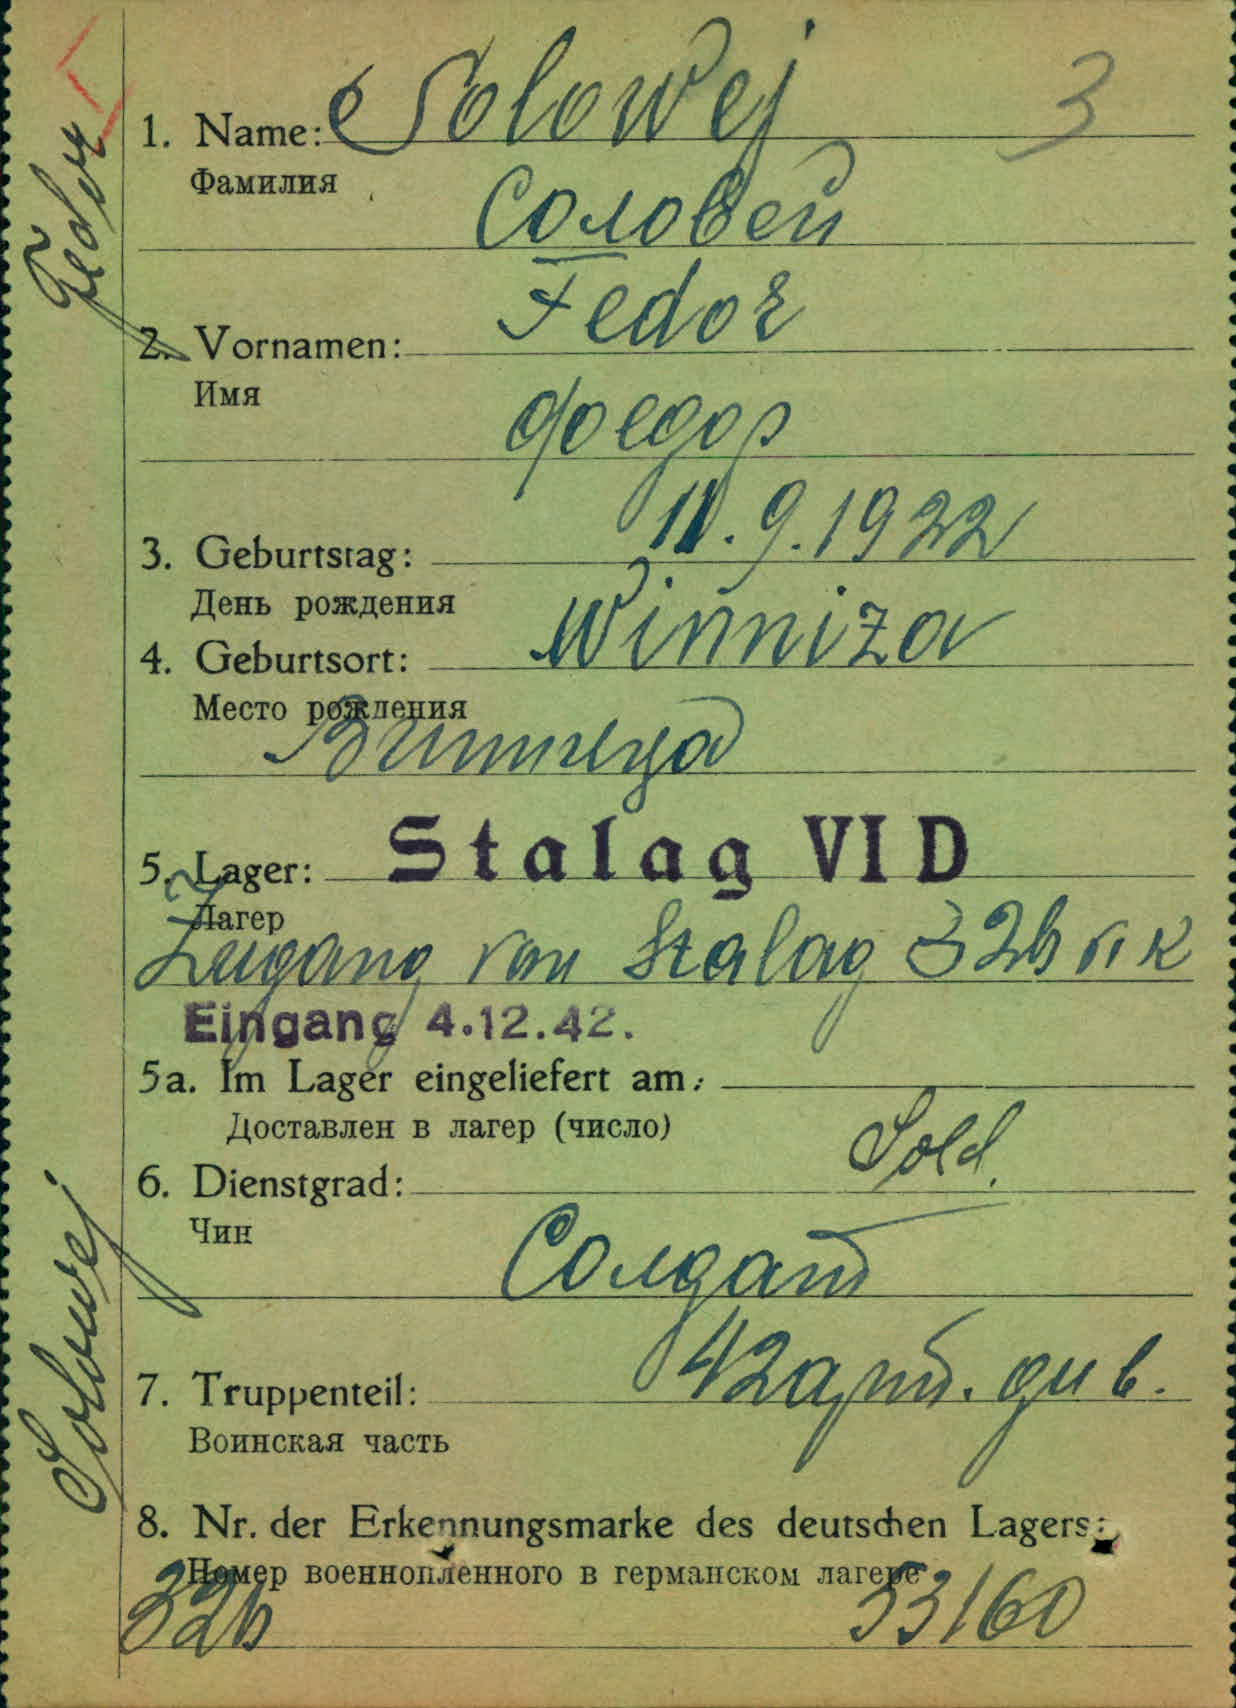 1. Name: Solowej 3
Фамилия
Соловей
Fedor
2. Vornamen: Fedor
Имя
Федор
3. Geburtstag: 11.9.1922
День рождения
4. Geburtsort: Winniza
Место рождения
Винница
5. Lager: Stalag VI D
Лагер
Zugang von Stalag 326 VI K
Eingang 4.12.42.
5a. Im Lager eingeliefert am:
Доставлен в лагер (число)
6. Dienstgrad: Sold.
Чин
Солдат
7. Truppenteil: 42 арт. див.
Воинская часть
Solowej
8. Nr. der Erkennungsmarke des deutschen Lagers:
Номер военнопленного в германском лагере
326 53160